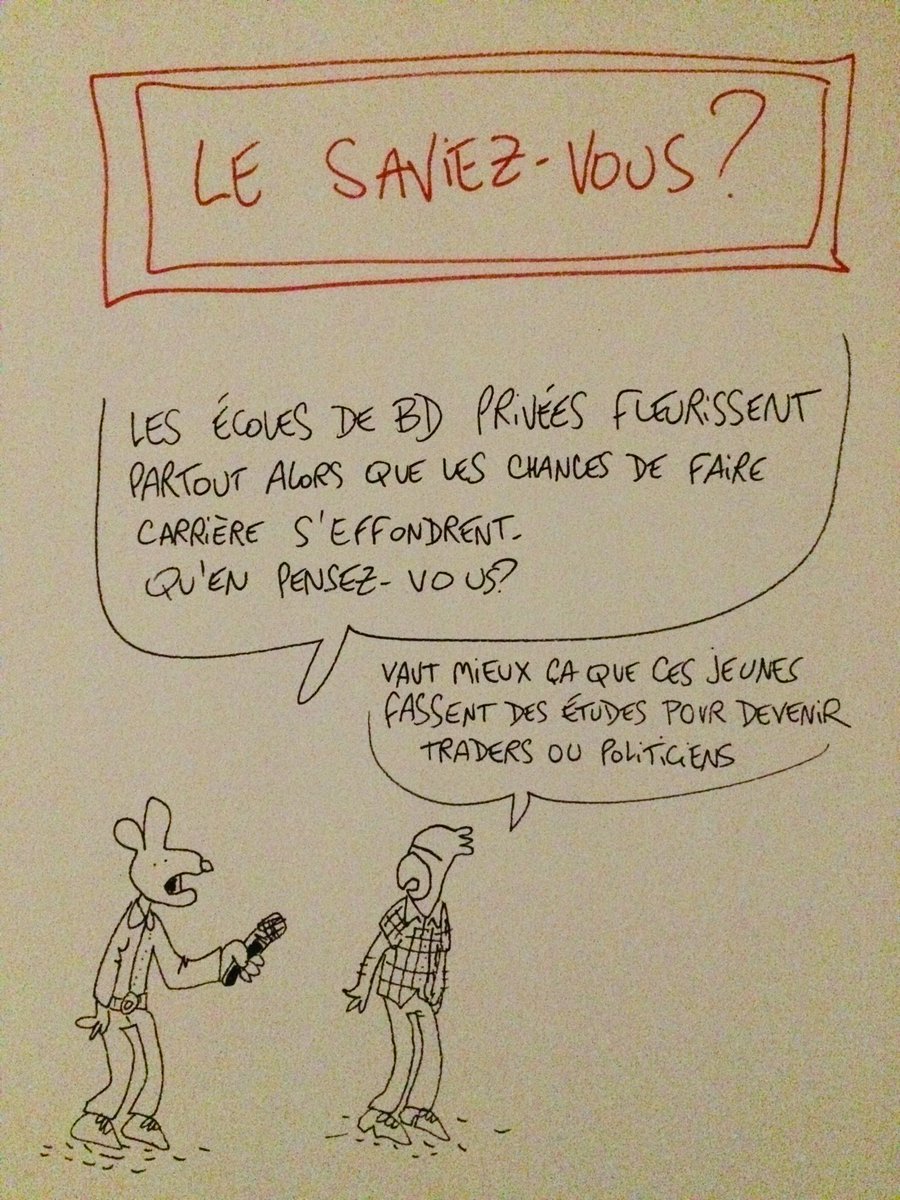 LE SAVIEZ-VOUS?
LES ÉCOLES DE BD PRIVÉES FLEURISSENT
PARTOUT ALORS QUE LES CHANCES DE FAIRE
CARRIÈRE S'EFFONDRENT.
QU'EN PENSEZ-VOUS?
VAUT MIEUX ÇA QUE CES JEUNES
FASSENT DES ÉTUDES POUR DEVENIR
TRADERS OU POLITICIENS